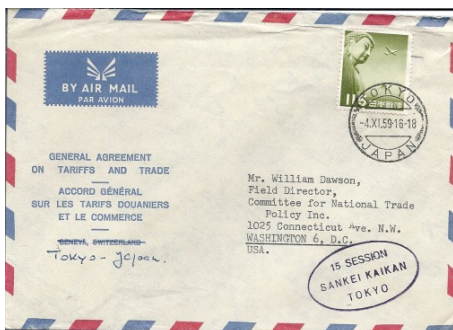 BY AIR MAIL
PAR AVION
TOKYO
-4.XI.59.16-18
JAPAN
GENERAL AGREEMENT
ON TARIFFS AND TRADE
ACCORD GÉNÉRAL
SUR LES TARIFS DOUANIERS
ET LE COMMERCE
GENEVA, SWITZERLAND
Tokyo - Japan.
Mr. William Dawson,
Field Director,
Committee for National Trade
Policy Inc.
1025 Connecticut Ave. N.W.
WASHINGTON 6, D.C.
USA.
15 SESSION
SANKEI KAIKAN
TOKYO